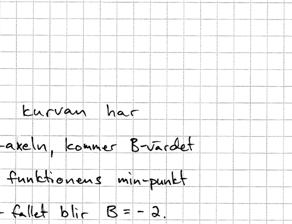 kurvan har
-axeln, kommer B-värdet
funktionens min-punkt
fallet blir B = - 2.